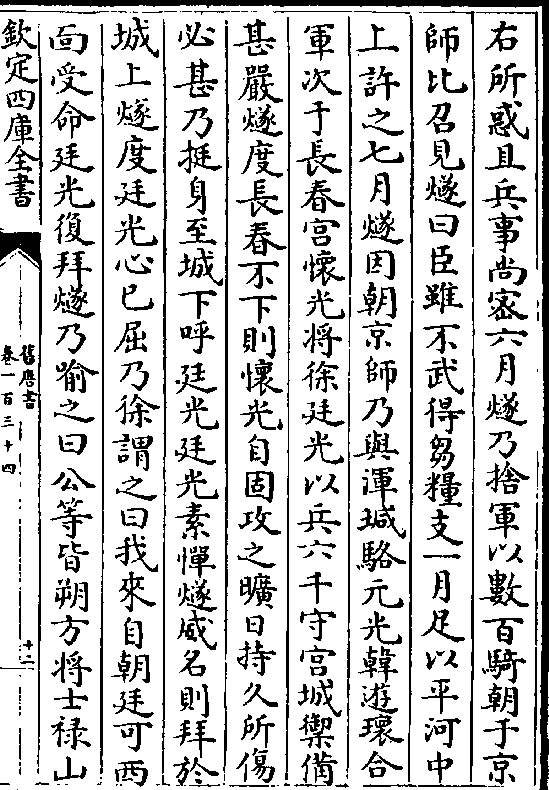 右所惑且兵事尚密六月燧乃捨軍以數百騎朝于京
師比召見燧曰臣雖不武得芻糧支一月足以平河中
上許之七月燧因朝京師乃與渾瑊駱元光韓遊瓌合
軍次于長春宮懷光将徐廷光以兵六千守宮城禦備
甚嚴燧度長春不下則懷光自固攻之曠日持久所傷
必甚乃挺身至城下呼廷光廷光素憚燧威名則拜於
城上燧度廷光心已屈乃徐謂之曰我來自朝廷可西
面受命廷光復拜燧乃喻之曰公等皆朔方将士禄山
欽定四庫全書
舊唐書
卷一百三十四
十二